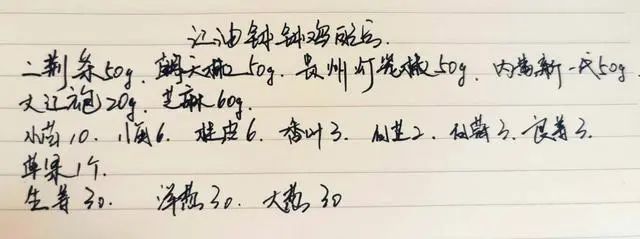 红油钵钵鸡配方.
二荆条50g. 朝天椒50g. 贵州灯笼椒50g. 内黄新一代50g.
大红袍20g. 芝麻60g.
小茴10. 八角6. 桂皮6. 香叶3. 白芷2. 白蔻3. 良姜3.
草果1个.
生姜30. 洋葱30. 大葱30